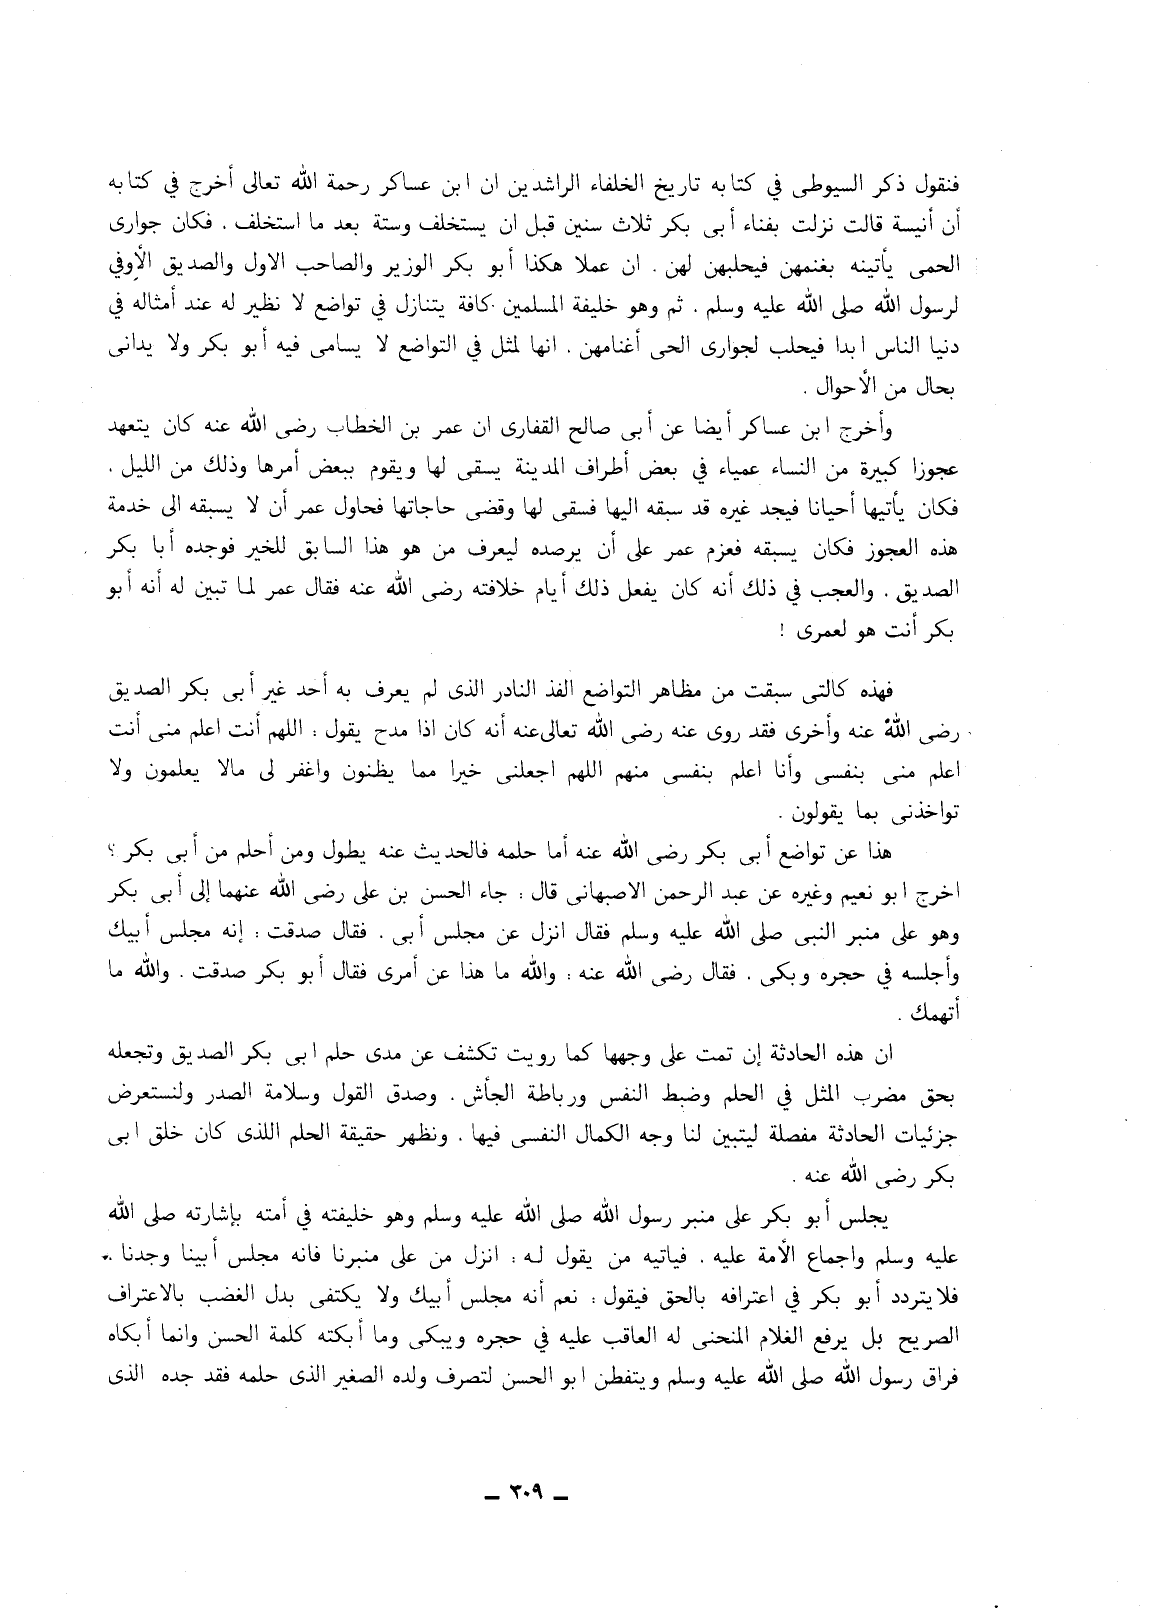 فنقول ذكر السيوطى في كتابه تاريخ الخلفاء الراشدين ان ابن عساكر رحمة الله تعالى أخرج في كتابه
أن أنيسة قالت نزلت بفناء أبى بكر ثلاث سنين قبل ان يستخلف وستة بعد ما استخلف . فكان جوارى
الحمى يأتينه بغنمهن فيحلبهن لهن . ان عملا هكذا أبو بكر الوزير والصاحب الاول والصديق الأوفي
لرسول الله صلى الله عليه وسلم . ثم وهو خليفة المسلمين كافة يتنازل في تواضع لا نظير له عند أمثاله في
دنيا الناس ابدا فيحلب لجوارى الحى أغنامهن . انها لمثل في التواضع لا يسامى فيه أبو بكر ولا يدانى
بحال من الأحوال .
وأخرج ابن عساكر أيضا عن أبى صالح القفارى ان عمر بن الخطاب رضى الله عنه كان يتعهد
عجوزا كبيرة من النساء عمياء في بعض أطراف المدينة يسقى لها ويقوم ببعض أمرها وذلك من الليل .
فكان يأتيها أحيانا فيجد غيره قد سبقه اليها فسقى لها وقضى حاجاتها فحاول عمر أن لا يسبقه الى خدمة
هذه العجوز فكان يسبقه فعزم عمر على أن يرصده ليعرف من هو هذا السابق للخير فوجده أبا بكر
الصديق . والعجب في ذلك أنه كان يفعل ذلك أيام خلافته رضى الله عنه فقال عمر لما تبين له أنه أبو
بكر أنت هو لعمرى !
فهذه كالتى سبقت من مظاهر التواضع الفذ النادر الذى لم يعرف به أحد غير أبى بكر الصديق
رضى الله عنه وأخرى فقد روى عنه رضى الله تعالى عنه أنه كان اذا مدح يقول : اللهم أنت اعلم منى أنت
اعلم منى بنفسى وأنا اعلم بنفسى منهم اللهم اجعلنى خيرا مما يظنون واغفر لى مالا يعلمون ولا
تواخذنى بما يقولون .
هذا عن تواضع أبى بكر رضى الله عنه أما حلمه فالحديث عنه يطول ومن أحلم من أبى بكر ؟
اخرج ابو نعيم وغيره عن عبد الرحمن الاصبهانى قال : جاء الحسن بن على رضى الله عنهما إلى أبى بكر
وهو على منبر النبى صلى الله عليه وسلم فقال انزل عن مجلس أبى . فقال صدقت : إنه مجلس أبيك
وأجلسه في حجره وبكى . فقال رضى الله عنه : والله ما هذا عن أمرى فقال أبو بكر صدقت . والله ما
أتهمك .
ان هذه الحادثة إن تمت على وجهها كما رويت تكشف عن مدى حلم ابى بكر الصديق وتجعله
بحق مضرب المثل في الحلم وضبط النفس ورباطة الجأش . وصدق القول وسلامة الصدر ولنستعرض
جزئيات الحادثة مفصلة ليتبين لنا وجه الكمال النفسى فيها . ونظهر حقيقة الحلم اللذى كان خلق ابى
بكر رضى الله عنه .
يجلس أبو بكر على منبر رسول الله صلى الله عليه وسلم وهو خليفته في أمته بإشارته صلى الله
عليه وسلم واجماع الأمة عليه . فياتيه من يقول له : انزل من على منبرنا فانه مجلس أبينا وجدنا ..
فلا يتردد أبو بكر في اعترافه بالحق فيقول : نعم أنه مجلس أبيك ولا يكتفى بدل الغضب بالاعتراف
الصريح بل يرفع الغلام المنحنى له العاقب عليه في حجره ويبكى وما أبكته كلمة الحسن وانما أبكاه
فراق رسول الله صلى الله عليه وسلم ويتفطن ابو الحسن لتصرف ولده الصغير الذى حلمه فقد جده الذى
ــ ٢٠٩ ــ